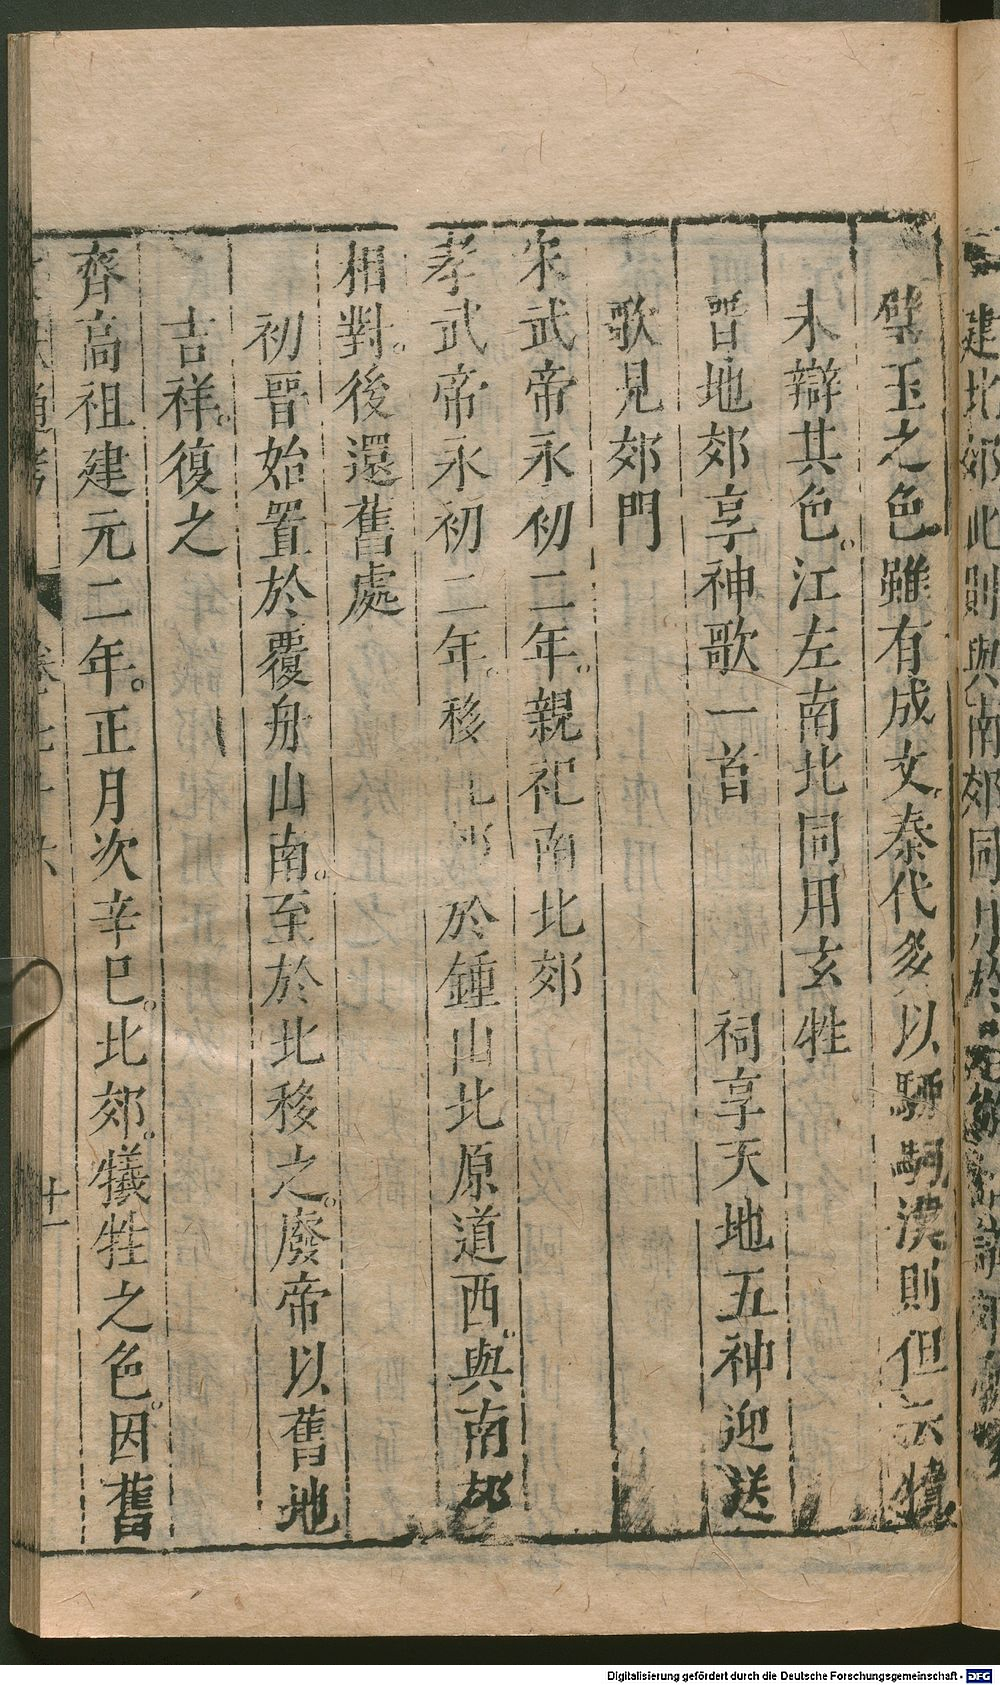 建北郊此則與南郊同月於
璧玉之色雖有成文秦代多以騮駒漢則但云犢
未辯其色江左南北同用玄牲
晉地郊享神歌一首　祠享天地五神迎送
歌見郊門
宋武帝永初二年親祀南北郊
孝武帝永初二年移北郊於鍾山北原道西與南郊
相對後還舊處
初晉始置於覆舟山南至於北移之廢帝以舊地
吉祥復之
齊高祖建元二年正月次辛巳北郊犧牲之色因舊
通考
卷七十六
十一
Digitalisierung gefördert durch die Deutsche Forschungsgemeinschaft - DFG